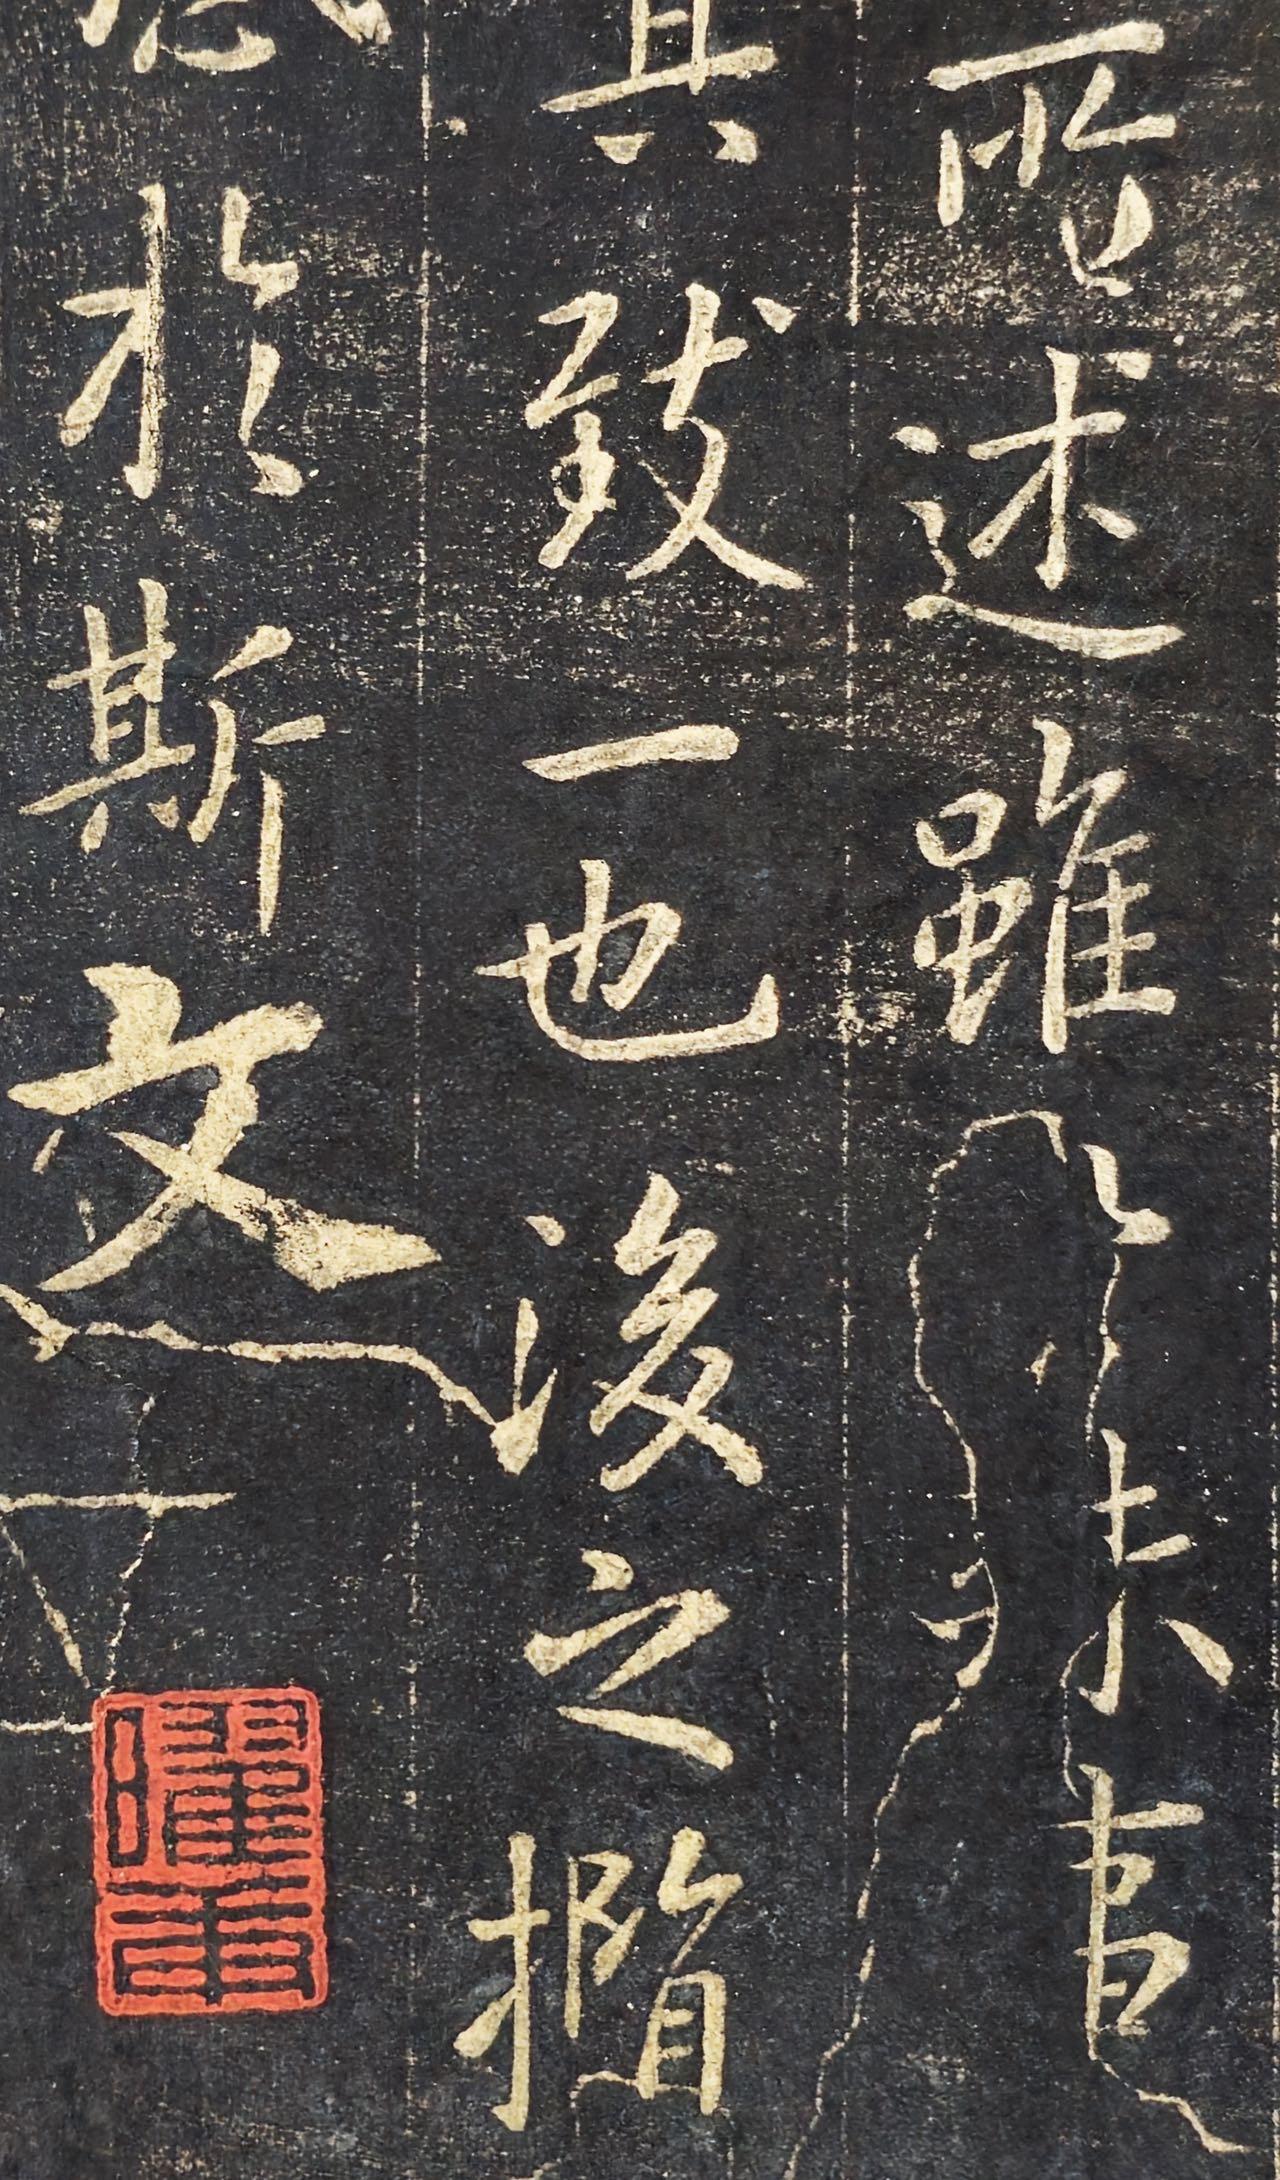 所述雖殊事
其致一也後之攬
感於斯文